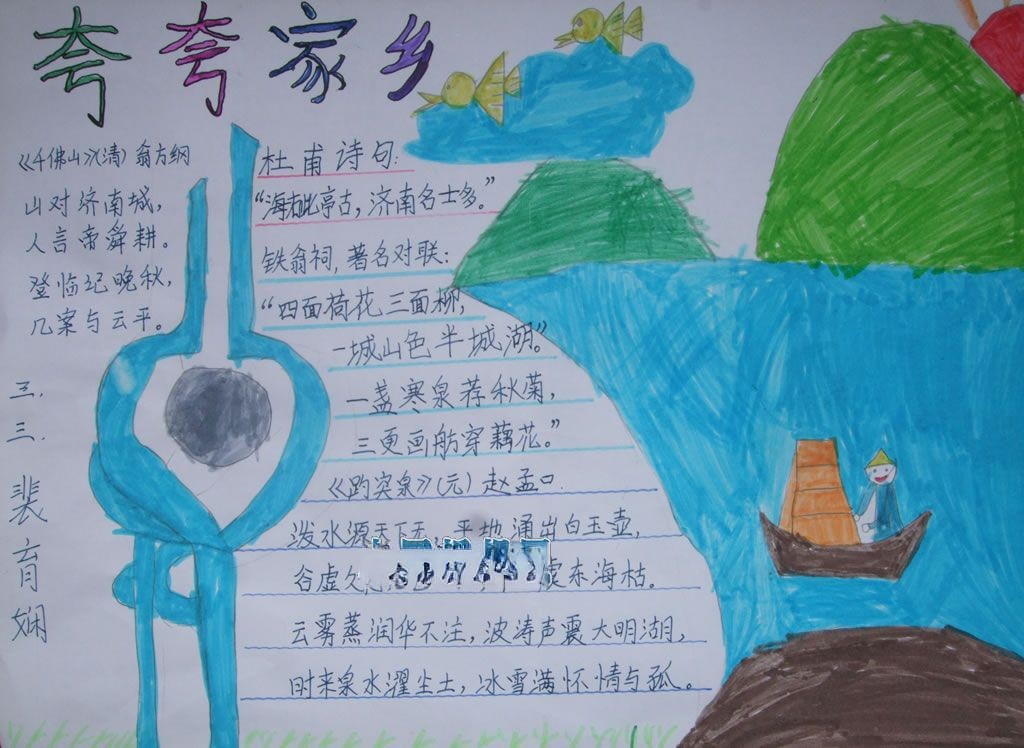 夸夸家乡
《千佛山》(清) 翁方纲
山对济南城,
人言帝舜耕。
登临记晚秋,
几案与云平。
三.
三.
裴
育
娴
杜甫诗句:
“海右此亭古, 济南名士多。”
铁翁祠, 著名对联:
“四面荷花三面柳,
一城山色半城湖。”
一盏寒泉荐秋菊,
三更画舫穿藕花。”
《趵突泉》(元) 赵孟口.
泼水源天下无, 平地涌出白玉壶,
谷虚久 东海枯。
云雾蒸润华不注, 波涛声震大明湖,
时来泉水濯尘土, 冰雪满怀情与孤。